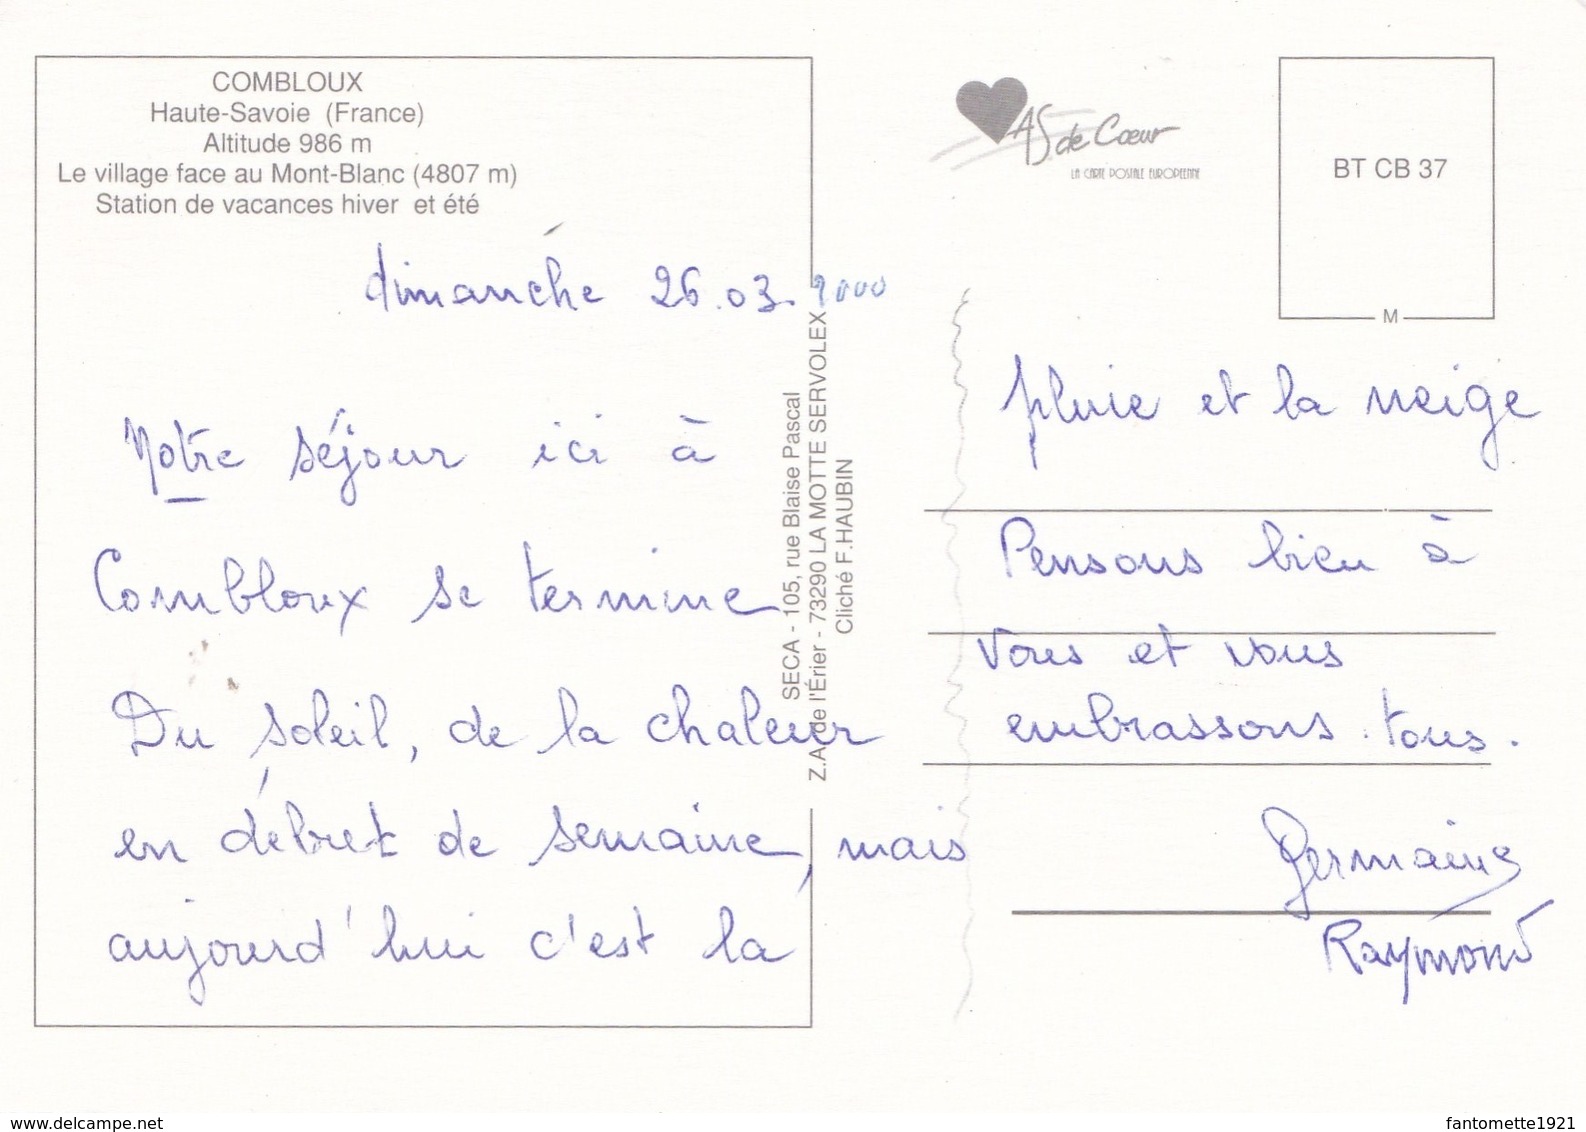 COMBLOUX
Haute-Savoie (France)
Altitude 986 m
Le village face au Mont-Blanc (4807 m)
Station de vacances hiver et été
dimanche 26.03.2000
Notre séjour ici à
Combloux se termine
Du soleil, de la chaleur
en début de semaine, mais
aujourd'hui c'est la
SECA - 105, rue Blaise Pascal
Z.A. de l'Érier - 73290 LA MOTTE SERVOLEX
Cliché F.HAUBIN
AS de Cœur
LA CARTE POSTALE EUROPEENNE
BT CB 37
M
pluie et la neige
Pensons bien à
vous et vous
embrassons tous.
Germaine
Raymond
delcampe.net
fantomette1921